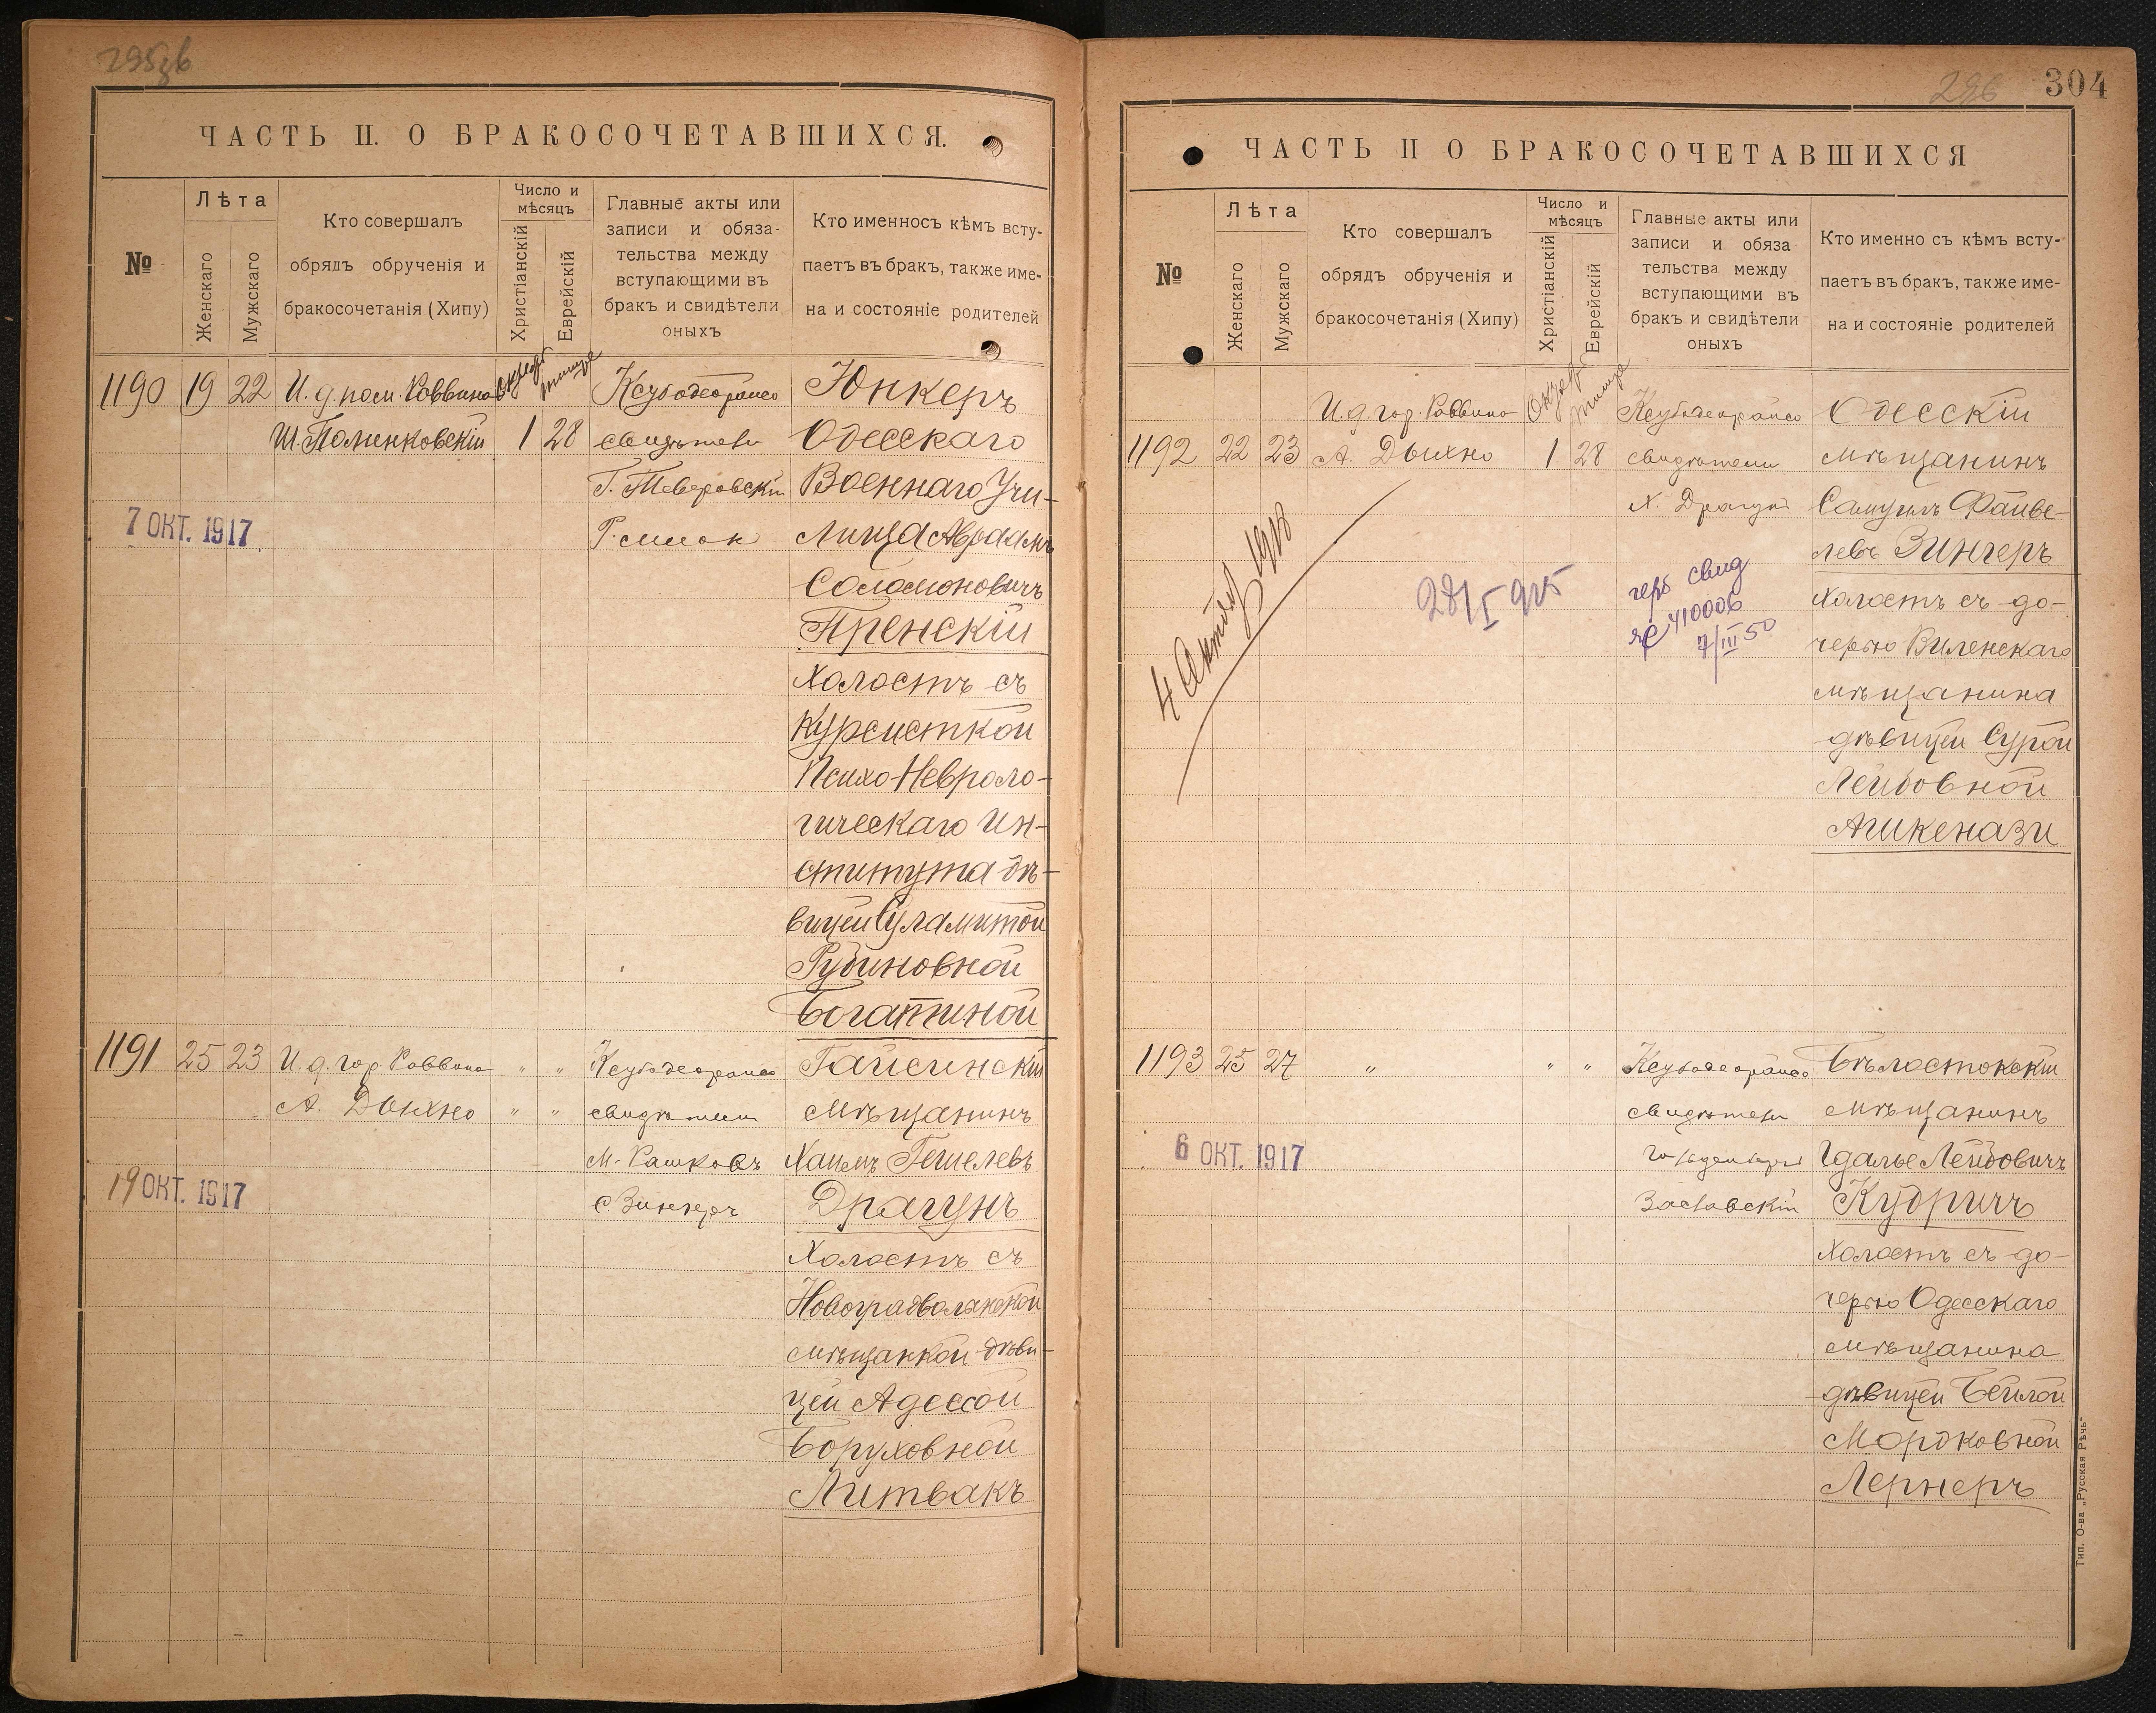 304
296
ЧАСТЬ II. О БРАКОСОЧЕТАВШИХСЯ.
№
Лѣта
Женскаго
Мужскаго
Кто совершалъ
обрядъ обрученія и
бракосочетанія (Хипу)
Число и
мѣсяцъ
Христіанскій
Еврейскій
Главные акты или
записи и обяза-
тельства между
вступающими въ
бракъ и свидѣтели
оныхъ
Кто именносъ кѣмъ всту-
паетъ въ бракъ, также име-
на и состояніе родителей
1190 19 22 И. д. пом. Раввина
Ш. Поменковскій 1 28
свидѣтели
Р. Симок
7 ОКТ. 1917
Юнкеръ
Одесскаго
Военнаго Учи-
лища Авраамъ
Соломоновичъ
Пренскій
Холостъ съ
Курсисткой
Психо-Невроло-
гическаго Ин-
ститута дѣ-
вицей Суламитой
Рубиновной
Богатиной
1191 25 23 И. д. гор. Раввина " "
А. Дыхно " "
свидѣтели
М. Рашковъ
С. Зингеръ
19 ОКТ. 1917
Гайсинскій
мѣщанинъ
Хаимъ Гешелевъ
Драгунъ
Холостъ съ
Новоградволынской
мѣщанкой дѣви-
цей Адессой
Боруховной
Литвакъ
ЧАСТЬ II О БРАКОСОЧЕТАВШИХСЯ
№
Лѣта
Женскаго
Мужскаго
Кто совершалъ
обрядъ обрученія и
бракосочетанія (Хипу)
Число и
мѣсяцъ
Христіанскій
Еврейскій
Главные акты или
записи и обяза
тельства между
вступающими въ
бракъ и свидѣтели
оныхъ
Кто именно съ кѣмъ всту-
паетъ въ бракъ, также име-
на и состояніе родителей
И. д. гор. Раввина
1192 22 23 А. Дыхно 1 28
свидѣтели
Х. Драгун
4 Октбр 1918
28/I 925
герб свид
410006
7/III 50
Одесскій
мѣщанинъ
Самуилъ Файве-
левъ Зингеръ
Холостъ съ до-
черью Виленскаго
мѣщанина
дѣвицей Сурой
Лейбовной
Ашкенази
1193 25 27 " " "
свидѣтели
Заславскій
6 ОКТ. 1917
Бѣлостокскій
мѣщанинъ
Гдалье Лейбовичъ
Кубричъ
Холостъ съ до-
черью Одесскаго
мѣщанина
дѣвицей Бейлой
Мордковной
Лернеръ
Тип. О-ва „Русская Рѣчь"